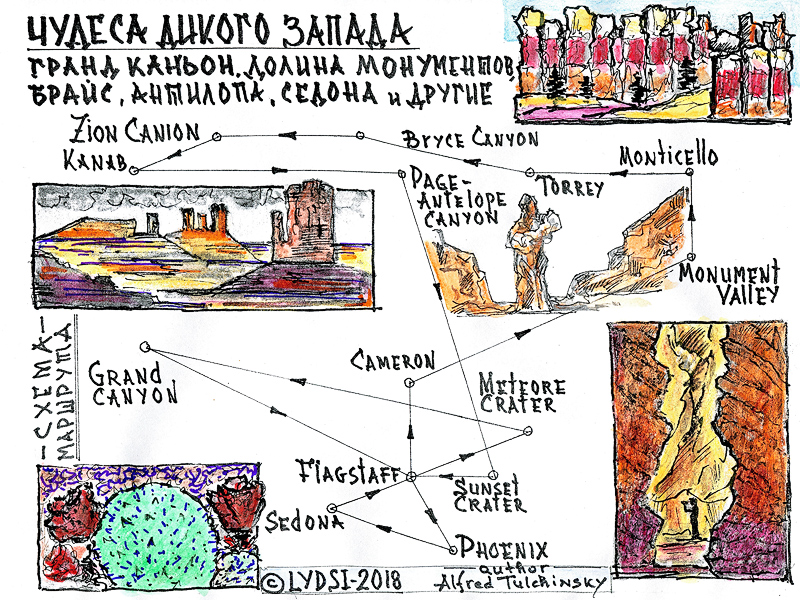 ЧУДЕСА ДИКОГО ЗАПАДА
ГРАНД КАНЬОН, ДОЛИНА МОНУМЕНТОВ,
БРАЙС, АНТИЛОПА, СЕДОНА и ДРУГИЕ
ZION CANION
BRYCE CANYON
MONTICELLO
KANAB
PAGE-
ANTELOPE
CANYON
TORREY
MONUMENT
VALLEY
-СХЕМА-
МАРШРУТА
GRAND
CANYON
CAMERON
METEORE
CRATER
FLAGSTAFF
SUNSET
CRATER
SEDONA
PHOENIX
author
Alfred Tulchinsky
©LYDSI-2018